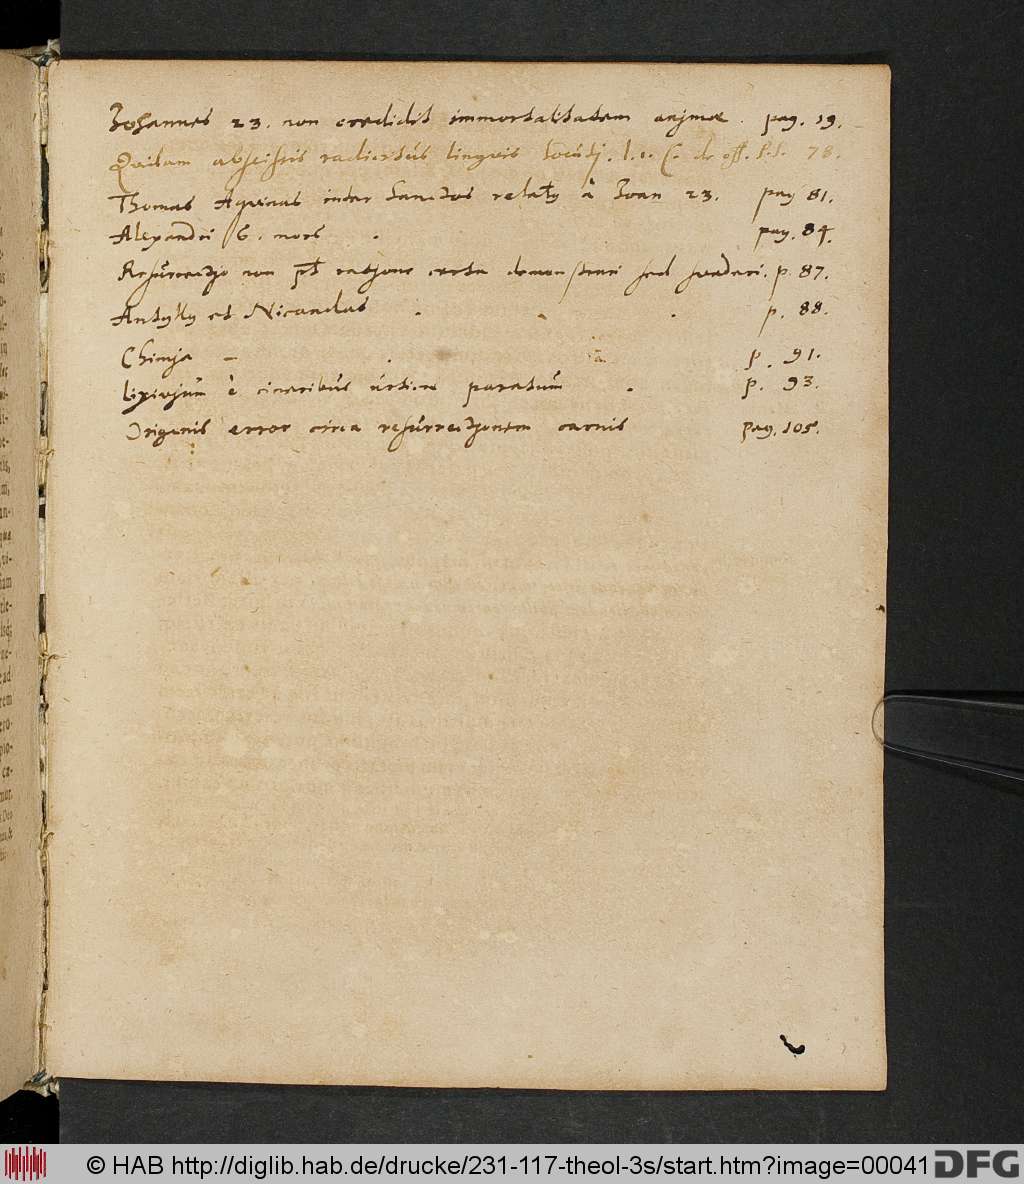 Johannes 23. non credidit immortalitatem animae. pag. 19.
Quidam abscissis radicitus linguis locuti. l. 1. C. de off. P. P. 78.
Thomas Aquinas inter Sanctos relatus à Joan 23. pag 81.
Alexandri 6. mors . pag. 84.
Resurrectio non pt ratione certa demonstrari sed suaderi. p. 87.
Antyllus et Nicandas . . p. 88.
Chimia - . p. 91.
lixivium è cineribus urticae paratum . p. 93.
Origenis error circa resurrectionem carnis pag. 105.
© HAB http://diglib.hab.de/drucke/231-117-theol-3s/start.htm?image=00041
DFG